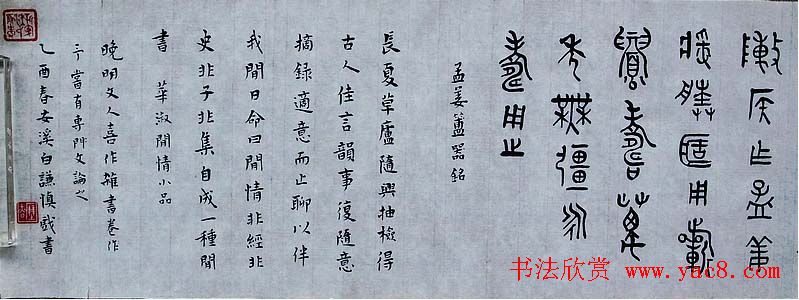 敶侯乍孟姜
媵匜用
眉壽萬
年無疆永
壽用之
孟姜簠器銘
長夏草廬隨興抽檢得
古人佳言韻事復隨意
摘録適意而止聊以伴
我閒日命曰閒情非經非
史非子非集自成一種閒
書 華淑閒情小品
晚明文人喜作雜書卷作
予嘗有專門文論之
乙酉春安溪白謙慎戲書
书法欣赏 www.yac8.com